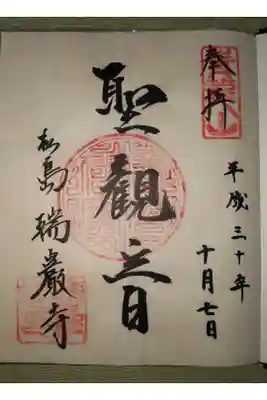 奉拝
平成三十年
十月七日
聖觀音
松島 瑞巖寺